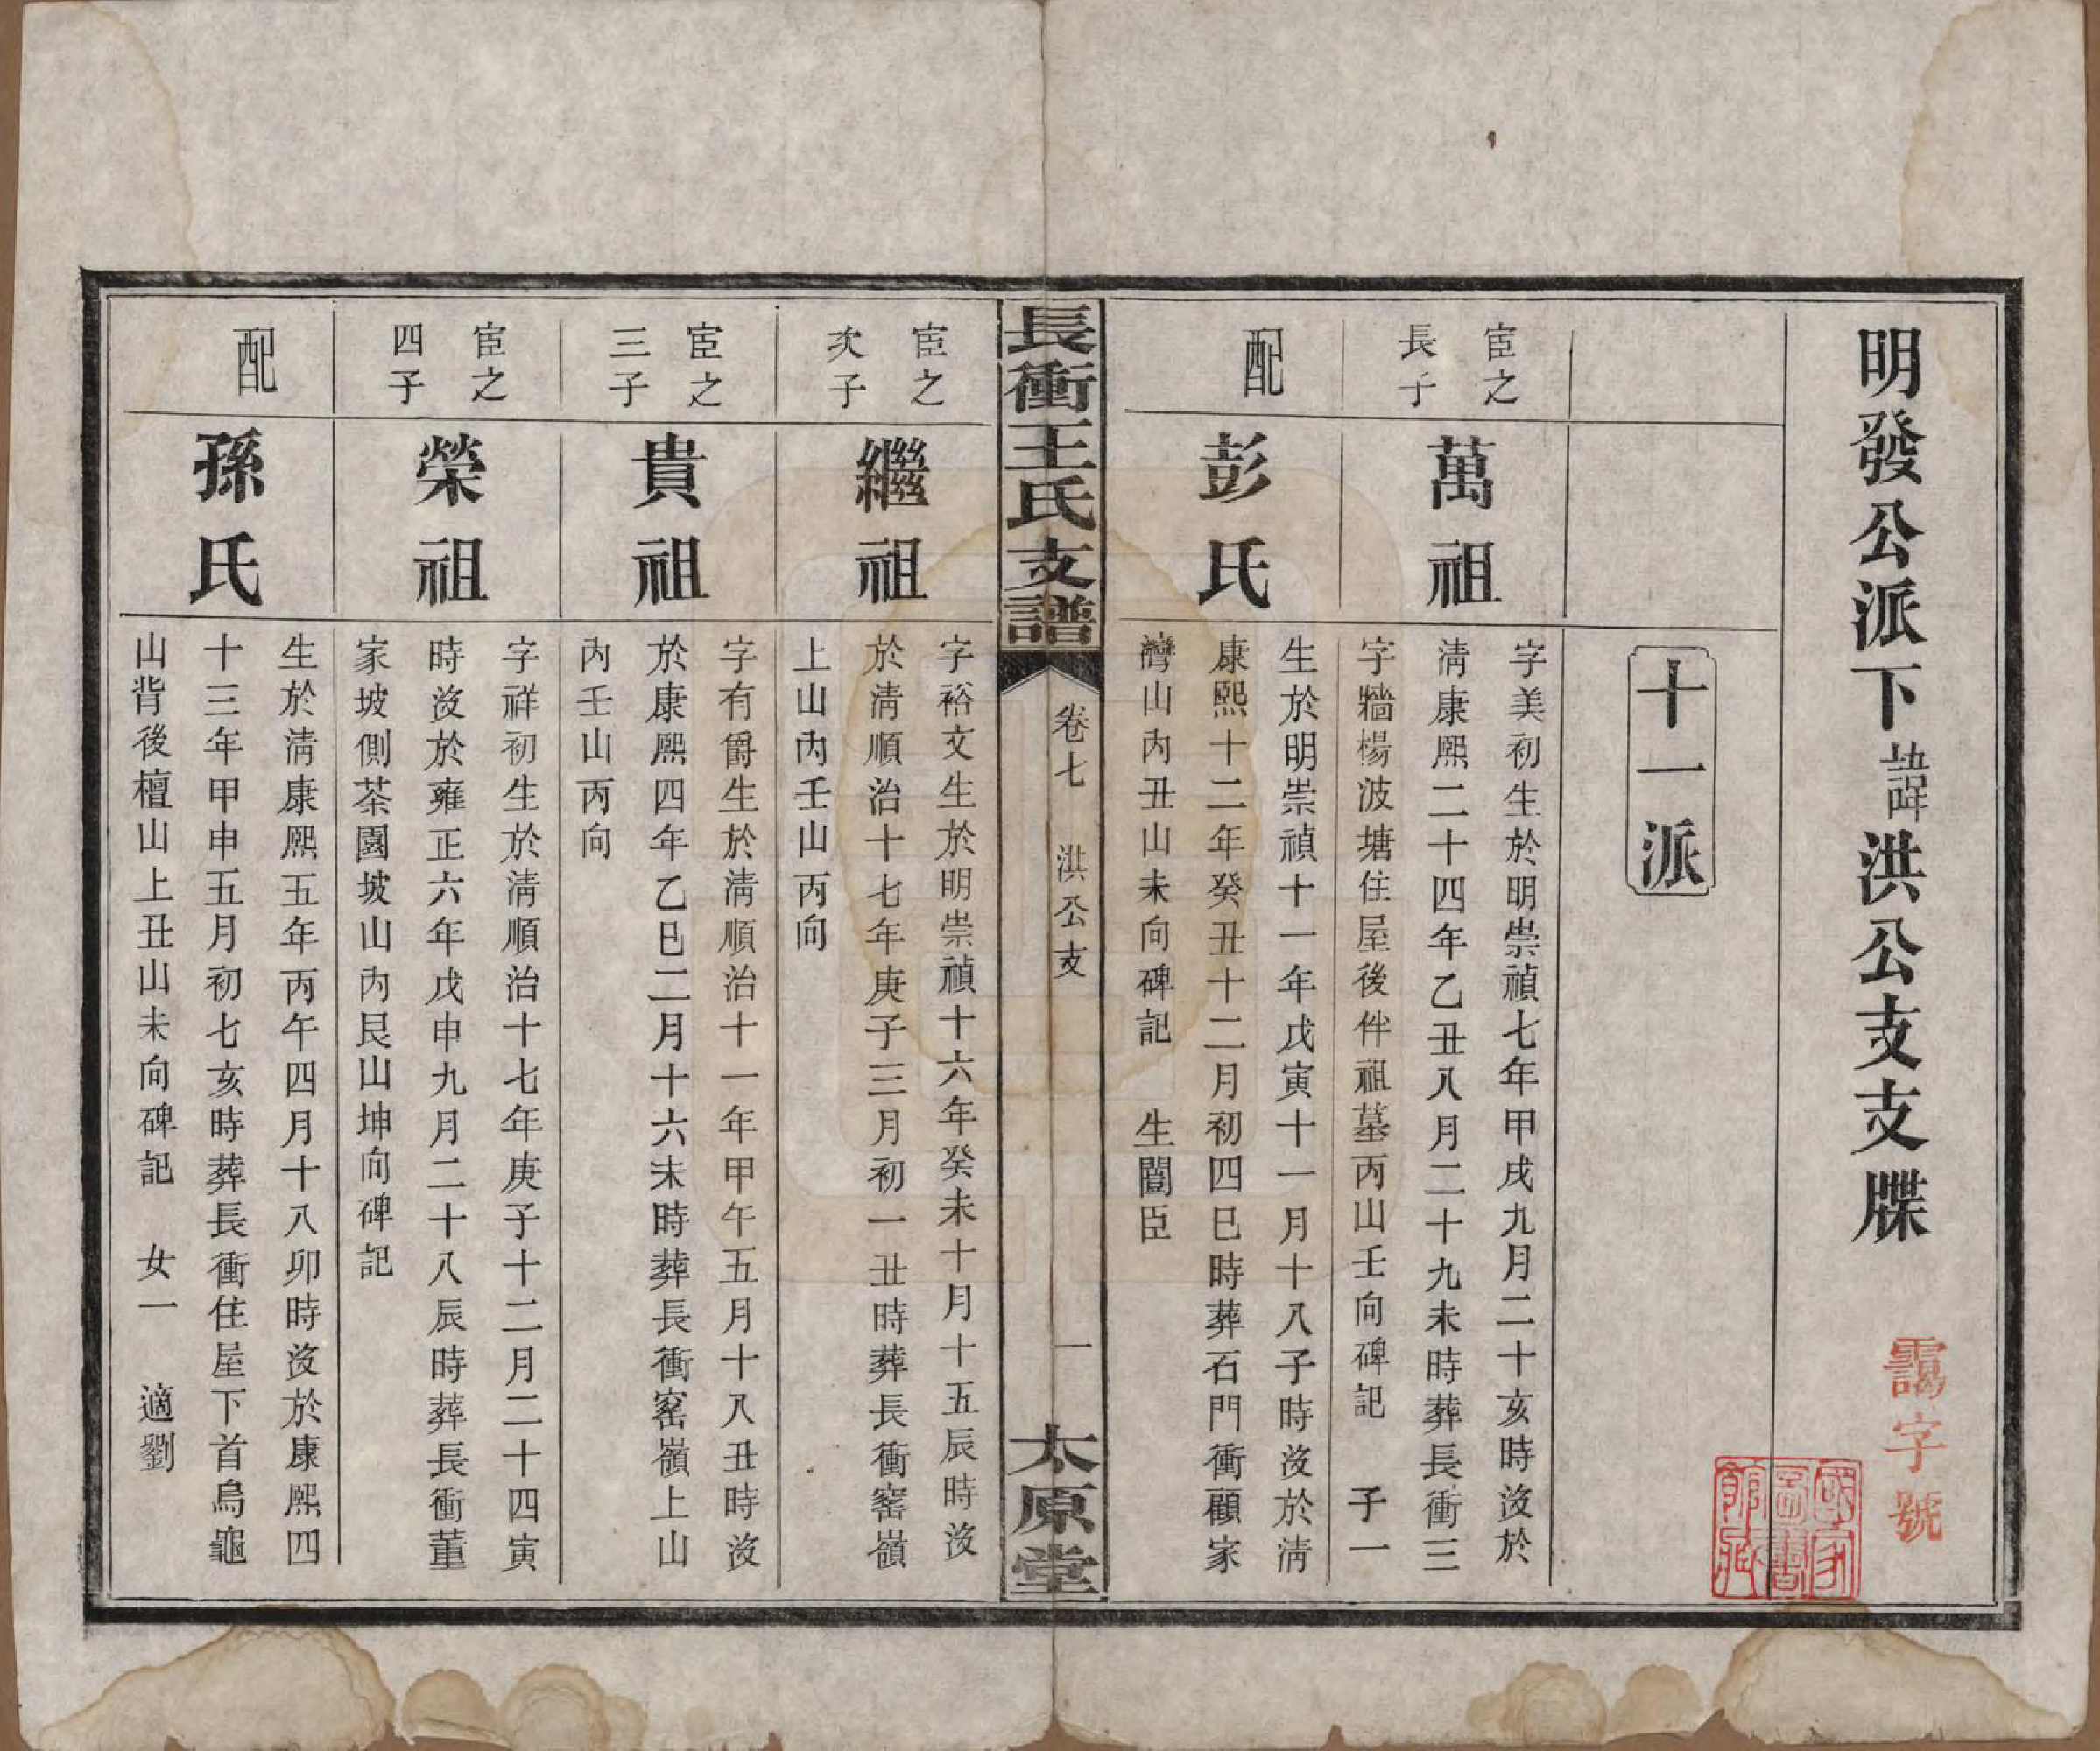 明發公派下諱洪公支支牒
靄字號
國家圖書館藏
十一派
宦之
長子
萬祖
字美初生於明崇禎七年甲戌九月二十亥時沒於
淸康熙二十四年乙丑八月二十九未時葬長衝三
字牆楊波塘住屋後伴祖墓丙山壬向碑記 子一
配
彭氏
生於明崇禎十一年戊寅十一月十八子時沒於淸
康熙十二年癸丑十二月初四巳時葬石門衝顧家
灣山內丑山未向碑記 生闓臣
長衝王氏支譜
卷七 洪公支
一
太原堂
宦之
次子
繼祖
字裕文生於明崇禎十六年癸未十月十五辰時沒
於淸順治十七年庚子三月初一丑時葬長衝窰嶺
上山內壬山丙向
宦之
三子
貴祖
字有爵生於淸順治十一年甲午五月十八丑時沒
於康熙四年乙巳二月十六未時葬長衝窰嶺上山
內壬山丙向
宦之
四子
榮祖
字祥初生於淸順治十七年庚子十二月二十四寅
時沒於雍正六年戊申九月二十八辰時葬長衝董
家坡側茶園坡山內艮山坤向碑記
配
孫氏
生於淸康熙五年丙午四月十八卯時沒於康熙四
十三年甲申五月初七亥時葬長衝住屋下首烏龜
山背後檀山上丑山未向碑記 女一 適劉